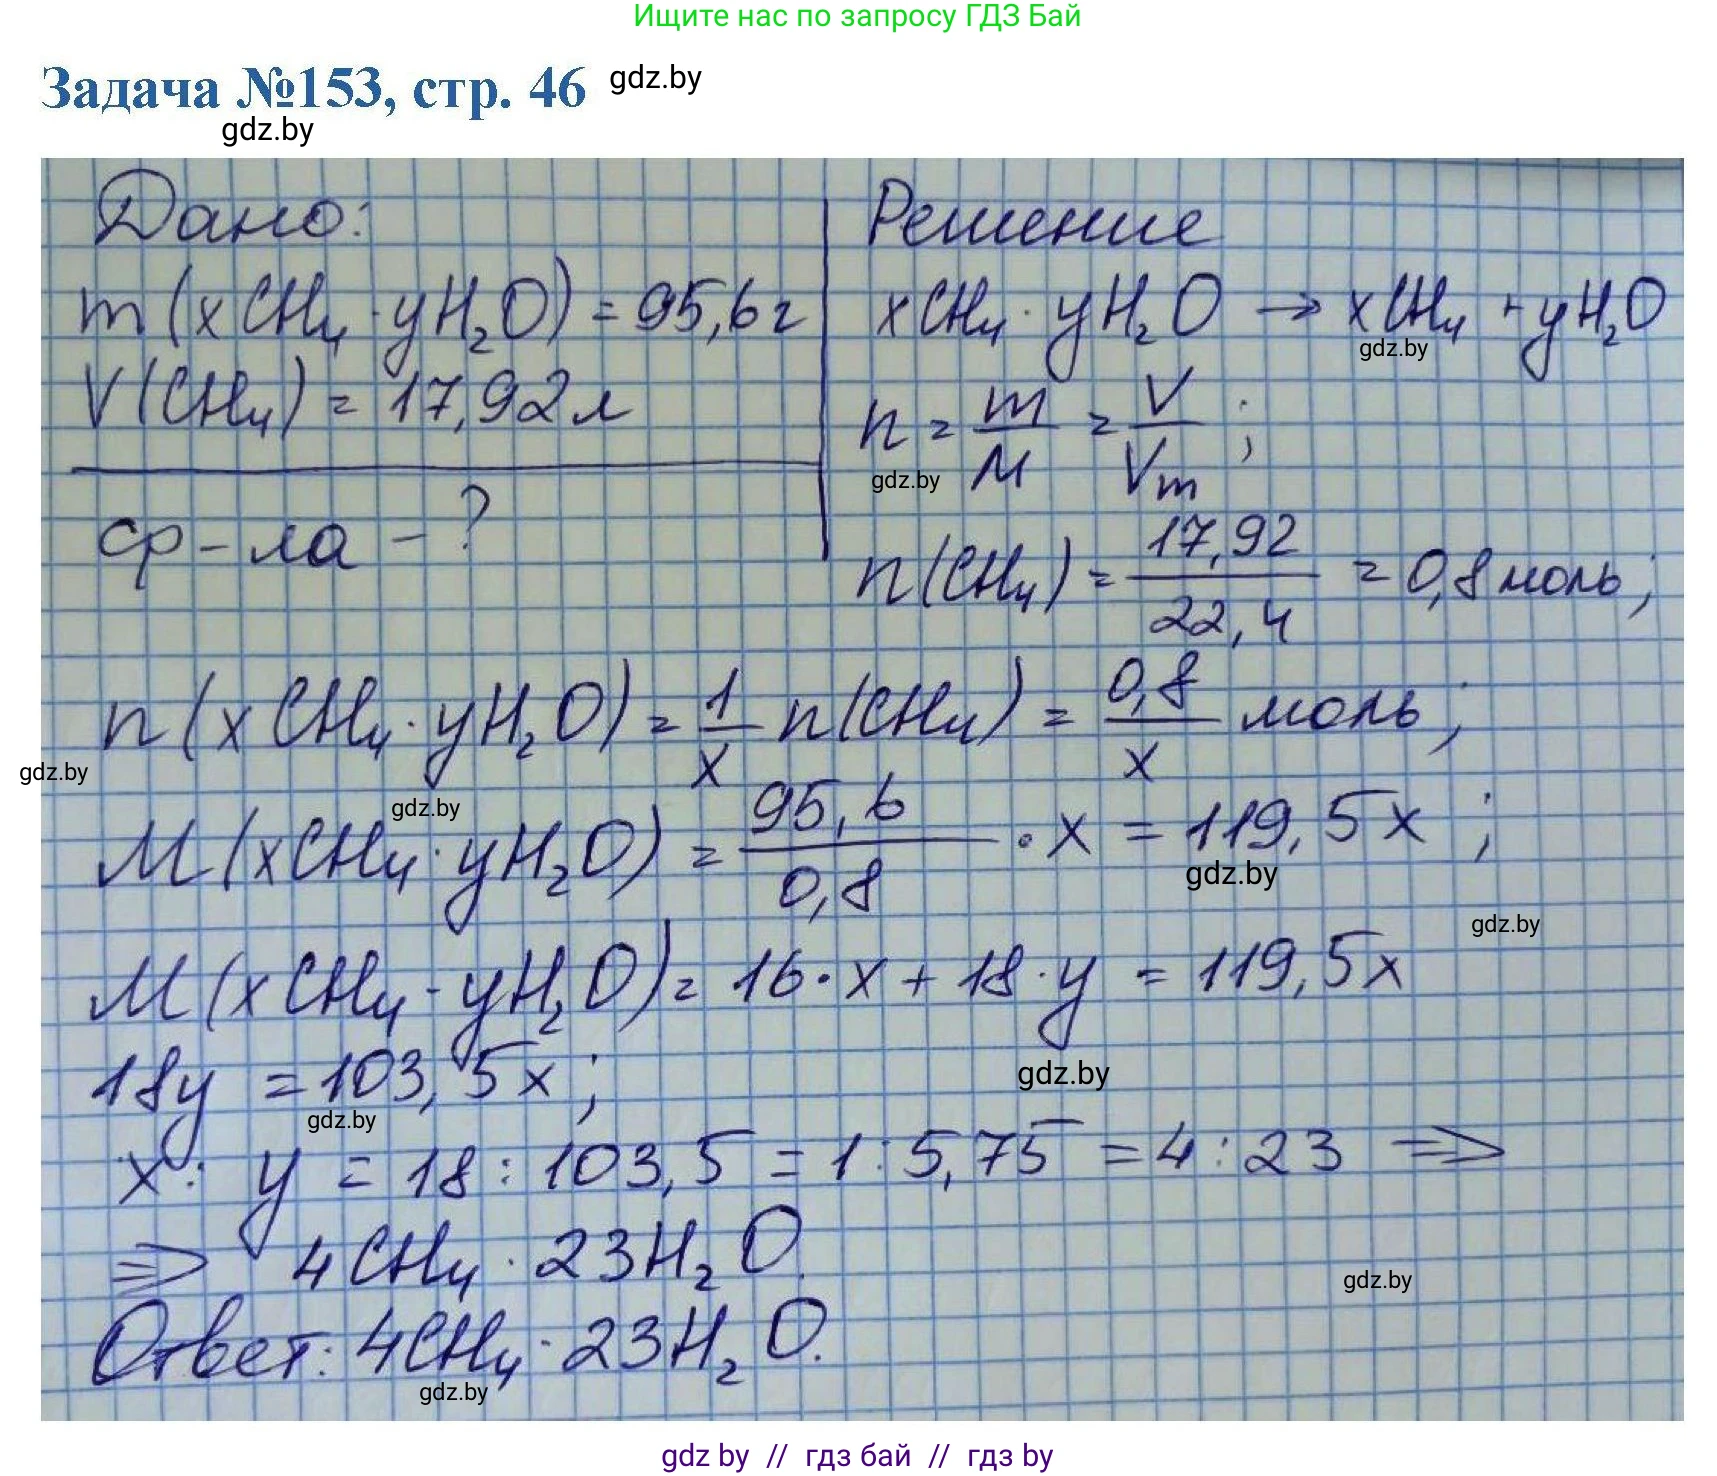 Ищите нас по запросу ГДЗ Бай
Задача №153, стр. 46 gdz.by
gdz.by
Дано:
m(xCH₄·yH₂O) = 95,6г
V(CH₄) = 17,92л
ф-ла - ?
Решение
xCH₄·yH₂O → xCH₄ + yH₂O
gdz.by
n = m/M = V/Vm ;
gdz.by
n(CH₄) = 17,92/22,4 = 0,8моль;
n(xCH₄·yH₂O) = 1/x n(CH₄) = 0,8/x моль;
gdz.by
gdz.by
M(xCH₄·yH₂O) = 95,6/0,8 · x = 119,5x ;
gdz.by
gdz.by
M(xCH₄·yH₂O) = 16·x + 18·y = 119,5x
18y = 103,5x ;
gdz.by
gdz.by
x : y = 18 : 103,5 = 1 : 5,75 = 4 : 23 ⇒
⇒ 4CH₄·23H₂O.
gdz.by
Ответ: 4CH₄·23H₂O.
gdz.by
gdz by // гдз бай // гдз by